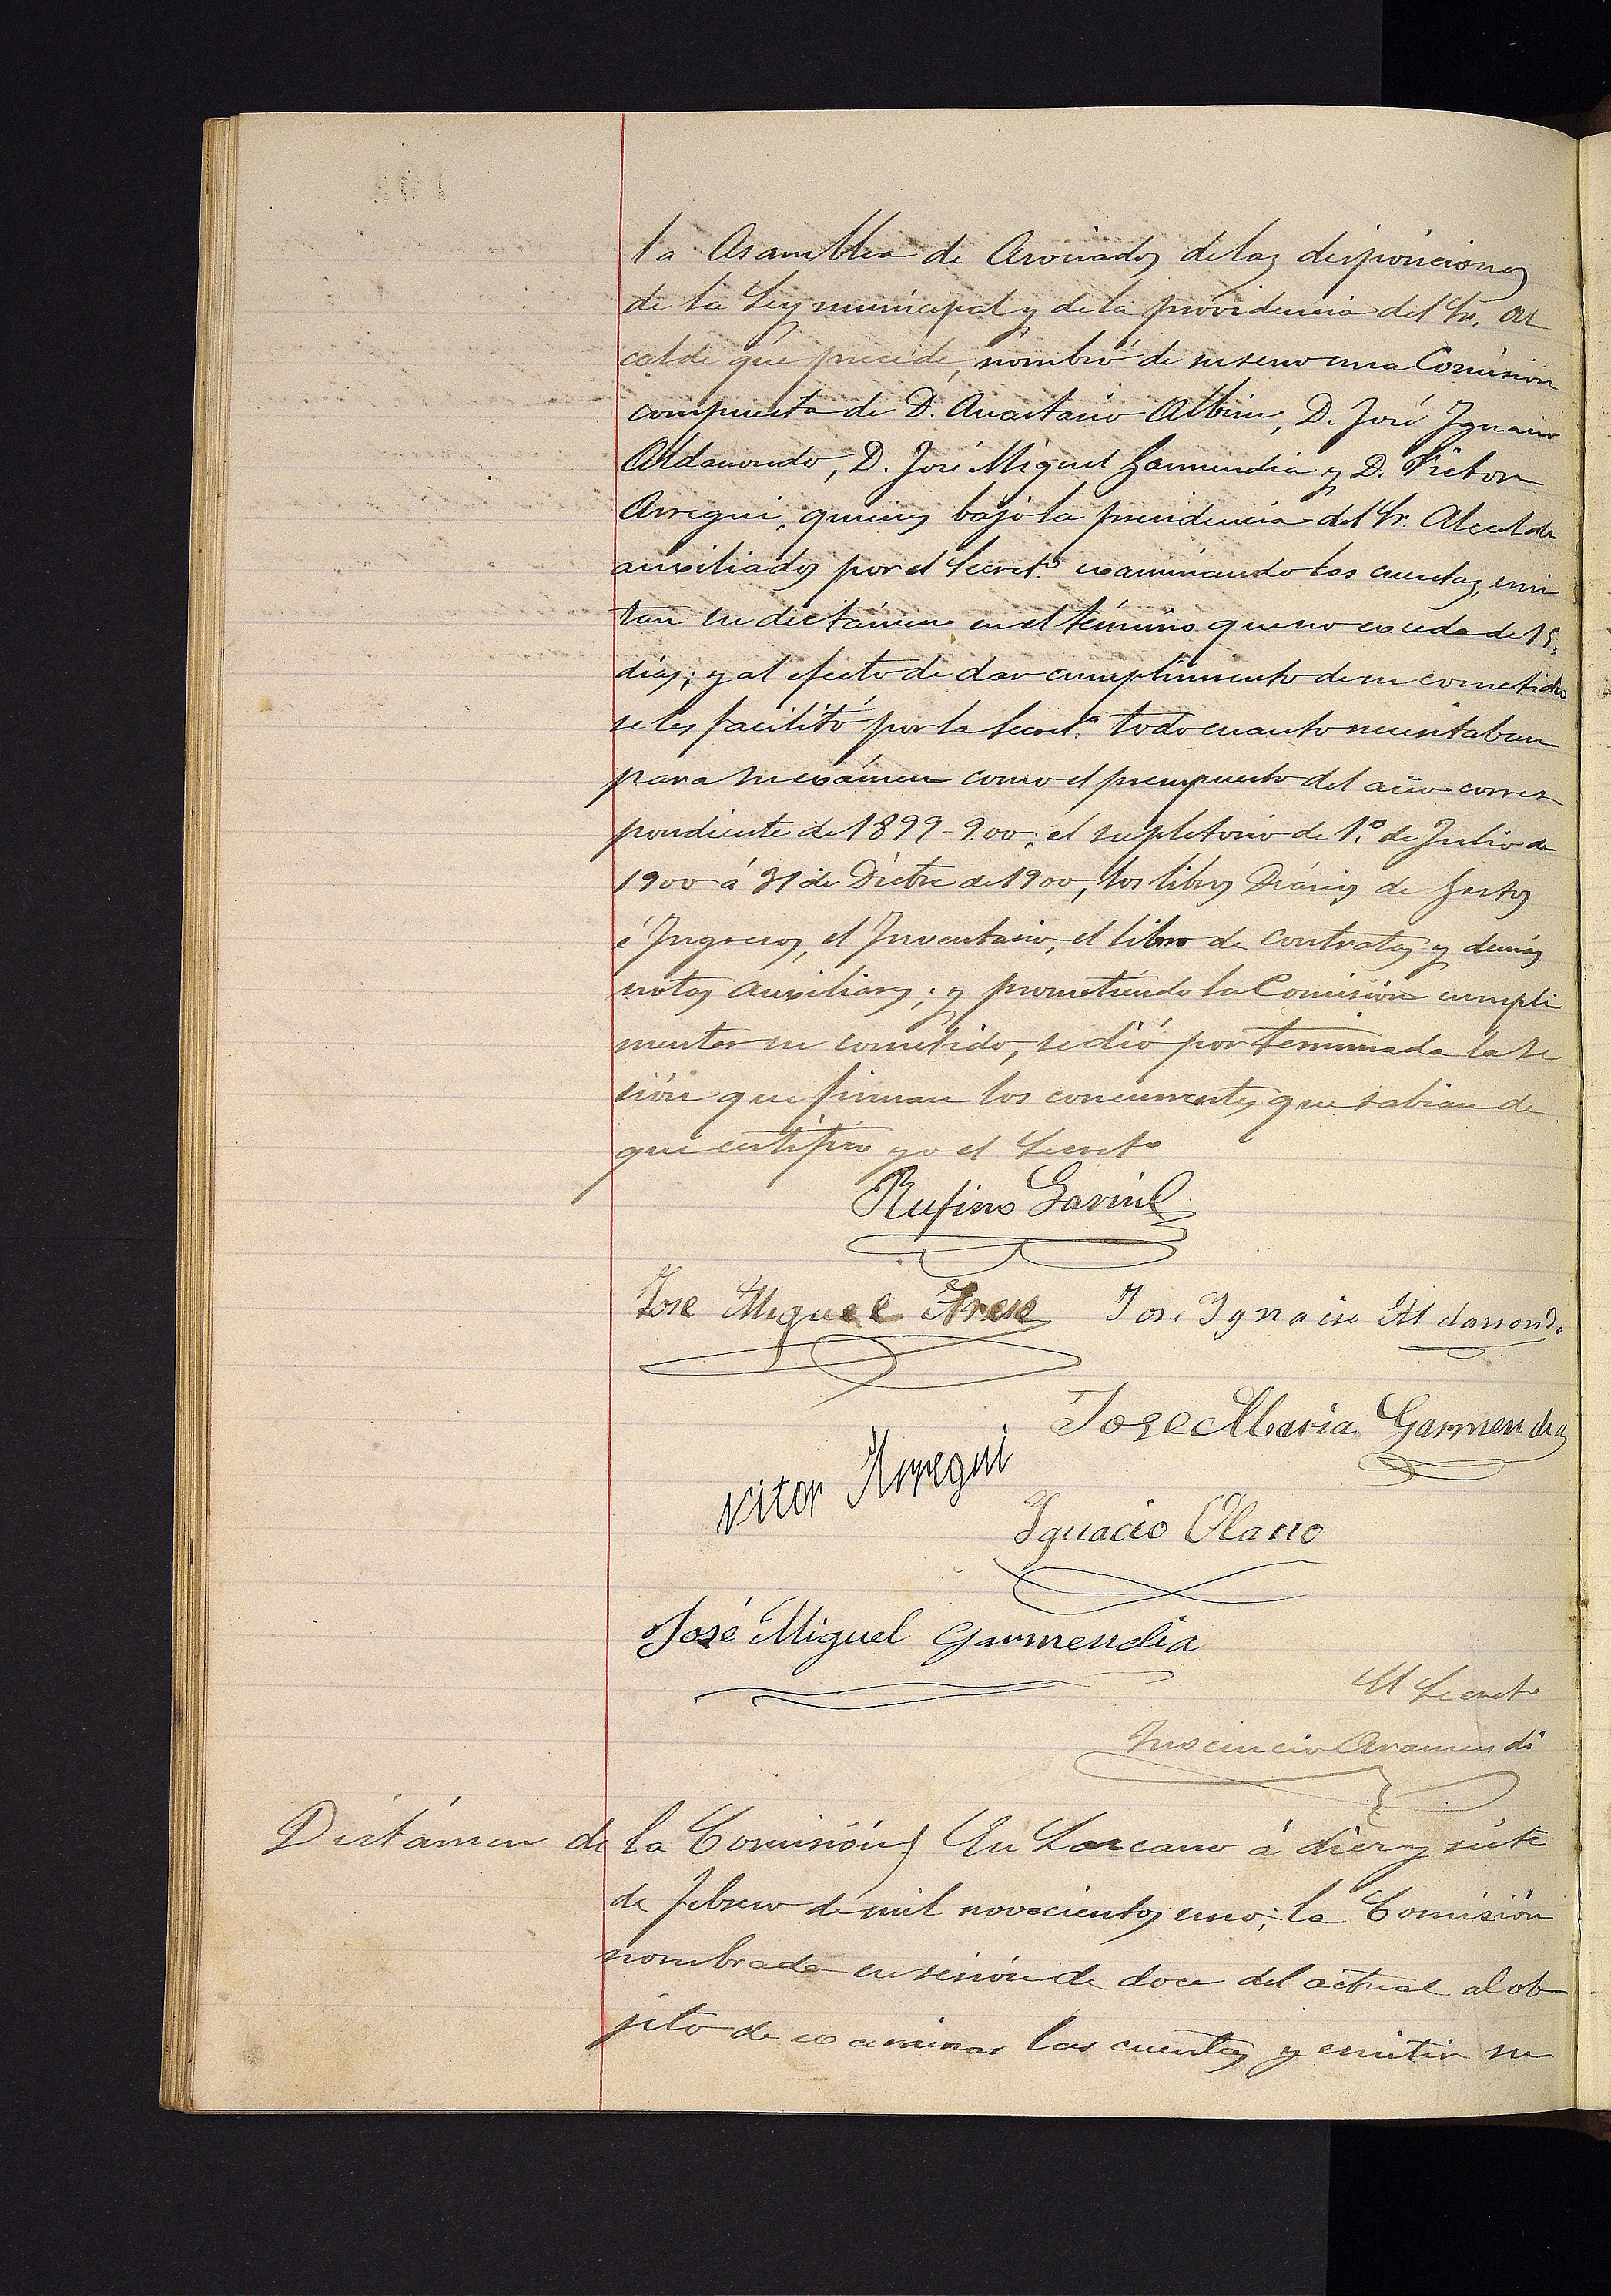 la Asamblea de Asociados de las disposiciones
de la Ley municipal y de la providencia del Sr. Al
calde que precede, nombró de su seno una Comisión
compuesta de D. Anastasio Albisu, D. José Ignacio
Aldasoro, D. José Miguel Garmendia y D. Victor
Arregui, quienes bajo la presidencia del Sr. Alcalde
auxiliados por el Secret.º examinando las cuentas, emi
tan su dictámen en el término que no exceda de 15
días; y al efecto de dar cumplimento de su cometido
se les facilitó por la Secret.ª todo cuanto necesitaban
para su exámen como el presupuesto del año corres
pondiente de 1899-900; el supletorio de 1.º de Julio de
1900 á 31 de Dictre de 1900, los libros Diarios de Gastos
é Ingresos, el Inventario, el libro de contratos y demás
notas auxiliares; y prometiendo la Comisión cumpli
mentar su cometido, se dió por terminada la se
sión que firman los concurrentes que sabian de
que certifico yo el Secret.º
Rufino
Jose Miguel Jose Ignacio
Jose Maria Garmendia
Vitor Arregui
Ignacio Olano
José Miguel Garmendia
El Secret.º
Inocencio Aramendi
Dictámen de la Comisión) En Lazcano á diez y siete
de febrero de mil novecientos uno; la Comisión
nombrada en sesión de doce del actual al ob
jeto de examinar las cuentas y emitir su